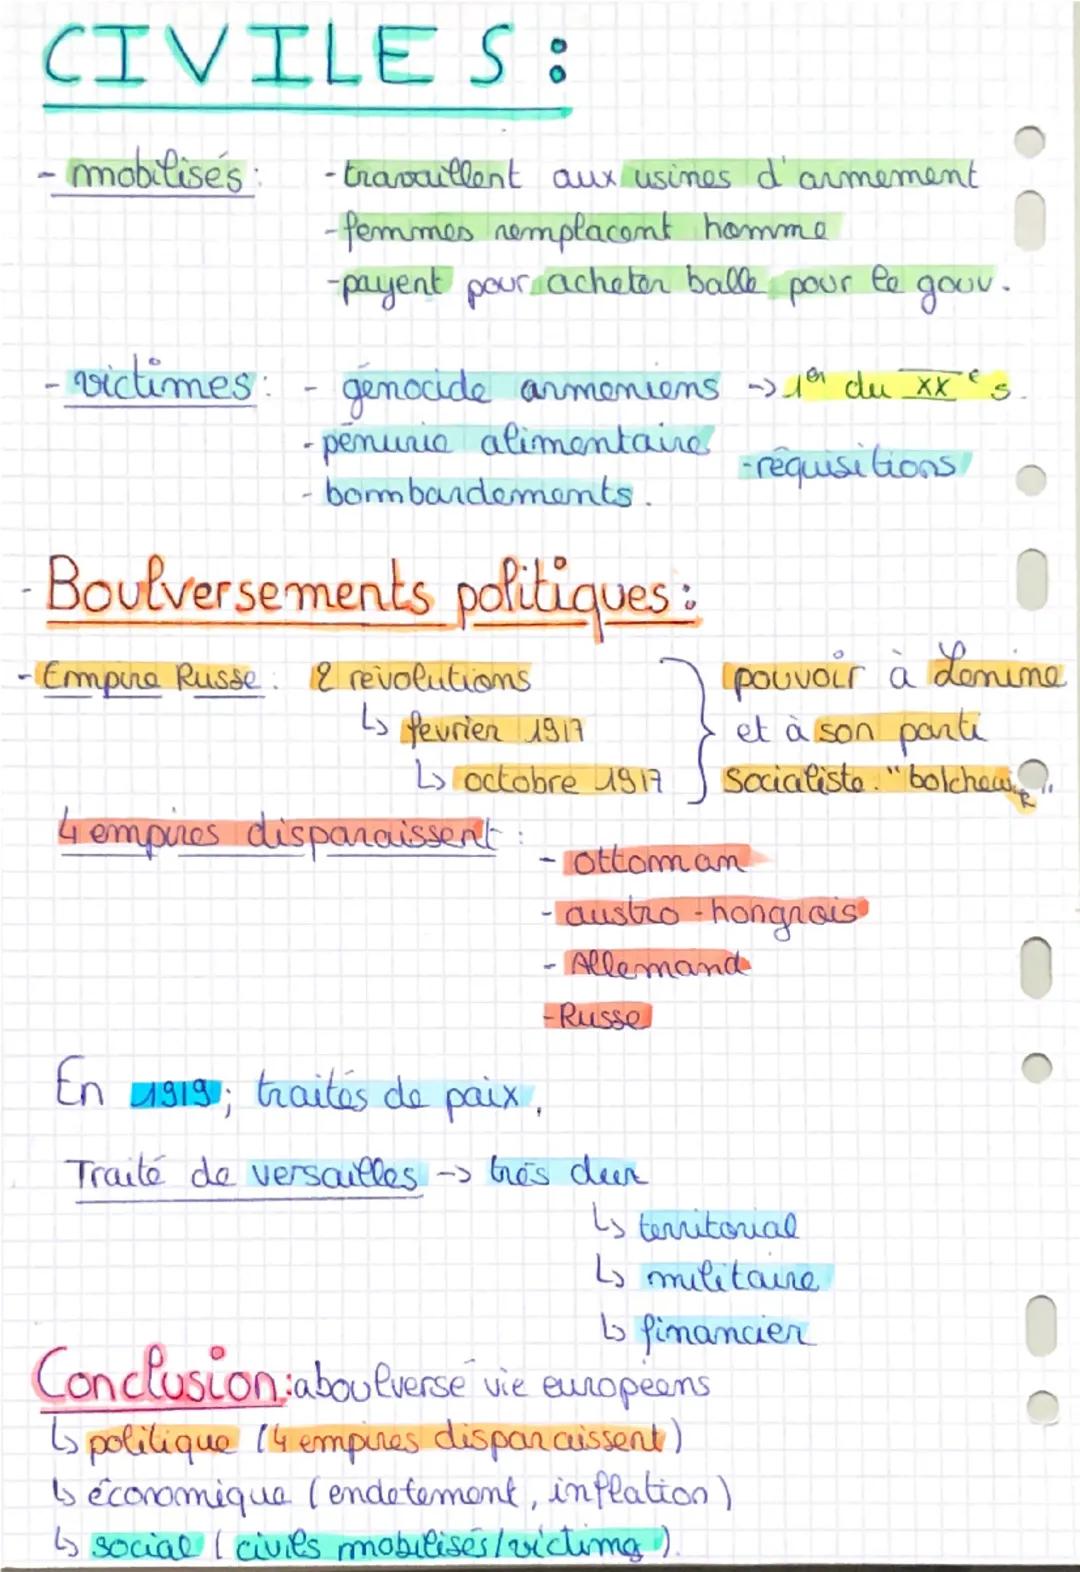 CIVILES :
- mobilisés : - travaillent aux usines d'armement
- femmes remplacent homme
- payent pour acheter balle pour le gouv.
- victimes : - génocide armeniens -> 1er du XXe s.
- pénurie alimentaire
- réquisitions
- bombardements.
- Boulversements politiques :
- Empire Russe : 2 révolutions
↳ fevrier 1917
↳ octobre 1917
pouvoir à Lenine
et à son parti
socialiste. "bolchewik".
4 empires disparaissent :
- ottoman
- austro-hongrois
- Allemand
- Russe
En 1919; traités de paix.
Traité de versailles -> très dur
↳ territorial
↳ militaire
↳ financier
Conclusion : a boulversé vie européens
↳ politique (4 empires disparaissent)
↳ économique (endetement, inflation)
↳ social (civils mobilisés/victime).